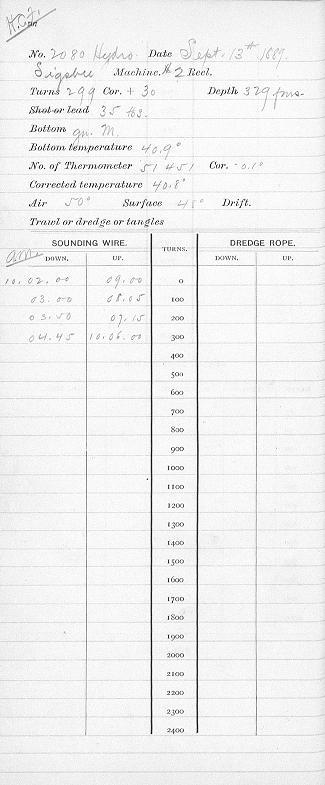 H.C.F.
No. 2080 Hydro. Date Sept. 13th, 1889.
Sigsbee Machine, #2 Reel.
Turns 299 Cor. + 30 Depth 329 fms.
Shot or lead 35 lbs.
Bottom gn. M.
Bottom temperature 40.9°
No. of Thermometer 51451 Cor. -0.1°
Corrected temperature 40.8°
Air 50° Surface 48° Drift.
Trawl or dredge or tangles
SOUNDING WIRE. TURNS. DREDGE ROPE.
a.m. DOWN. UP. DOWN. UP.
10.02.00 09.00 0
03.00 08.05 100
03.50 07.15 200
04.45 10.06.00 300
400
500
600
700
800
900
1000
1100
1200
1300
1400
1500
1600
1700
1800
1900
2000
2100
2200
2300
2400